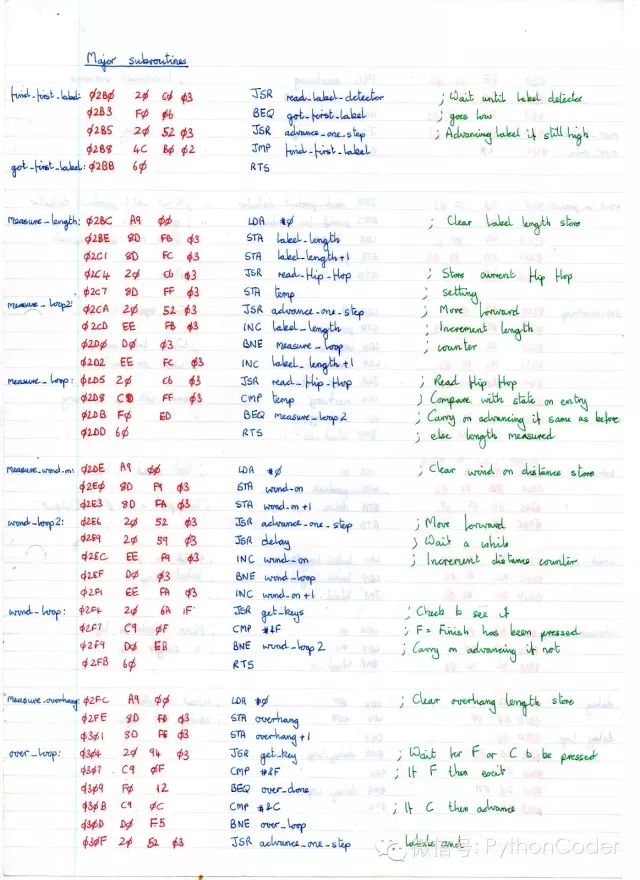 Major subroutines
find_first_label: Ø2BØ 2Ø CØ Ø3 JSR read_label_detector ; Wait until label detector
Ø2B3 FØ Ø6 BEQ got_first_label ; goes low
Ø2B5 2Ø 52 Ø3 JSR advance_one_step ; Advancing label if still high
Ø2B8 4C BØ Ø2 JMP find_first_label
got_first_label: Ø2BB 6Ø RTS
measure_length: Ø2BC A9 ØØ LDA #Ø ; Clear label length store
Ø2BE 8D FB Ø3 STA label_length
Ø2C1 8D FC Ø3 STA label_length+1
Ø2C4 2Ø C6 Ø3 JSR read_Hip_Hop ; Store current Hip Hop
Ø2C7 8D FF Ø3 STA temp ; setting
measure_loop2: Ø2CA 2Ø 52 Ø3 JSR advance_one_step ; Move forward
Ø2CD EE FB Ø3 INC label_length ; Increment length
Ø2DØ DØ Ø3 BNE measure_loop ; counter
Ø2D2 EE FC Ø3 INC label_length+1
measure_loop: Ø2D5 2Ø C6 Ø3 JSR read_Hip_Hop ; Read Hip Hop
Ø2D8 CD FF Ø3 CMP temp ; Compare with state on entry
Ø2DB FØ ED BEQ measure_loop2 ; Carry on advancing if same as before
Ø2DD 6Ø RTS ; else length measured
measure_wind_on: Ø2DE A9 ØØ LDA #Ø ; Clear wind on distance store
Ø2EØ 8D F9 Ø3 STA wind_on
Ø2E3 8D FA Ø3 STA wind_on+1
wind_loop2: Ø2E6 2Ø 52 Ø3 JSR advance_one_step ; Move forward
Ø2E9 2Ø 59 Ø3 JSR delay ; Wait a while
Ø2EC EE F9 Ø3 INC wind_on ; Increment distance counter
Ø2EF DØ Ø3 BNE wind_loop
Ø2F1 EE FA Ø3 INC wind_on+1
wind_loop: Ø2F4 2Ø 6A 1F JSR get_keys ; Check to see if
Ø2F7 C9 ØF CMP #&F ; F = Finish has been pressed
Ø2F9 DØ EB BNE wind_loop2 ; Carry on advancing if not
Ø2FB 6Ø RTS
measure_overhang: Ø2FC A9 ØØ LDA #Ø ; Clear overhang length store
Ø2FE 8D FD Ø3 STA overhang
Ø3Ø1 8D FE Ø3 STA overhang+1
over_loop: Ø3Ø4 2Ø 94 Ø3 JSR get_key ; Wait for F or C to be pressed
Ø3Ø7 C9 ØF CMP #&F ; If F then exit
Ø3Ø9 FØ 12 BEQ over_done
Ø3ØB C9 ØC CMP #&C ; If C then advance
Ø3ØD DØ F5 BNE over_loop
Ø3ØF 2Ø 52 Ø3 JSR advance_one_step labels and
微信号: PythonCoder